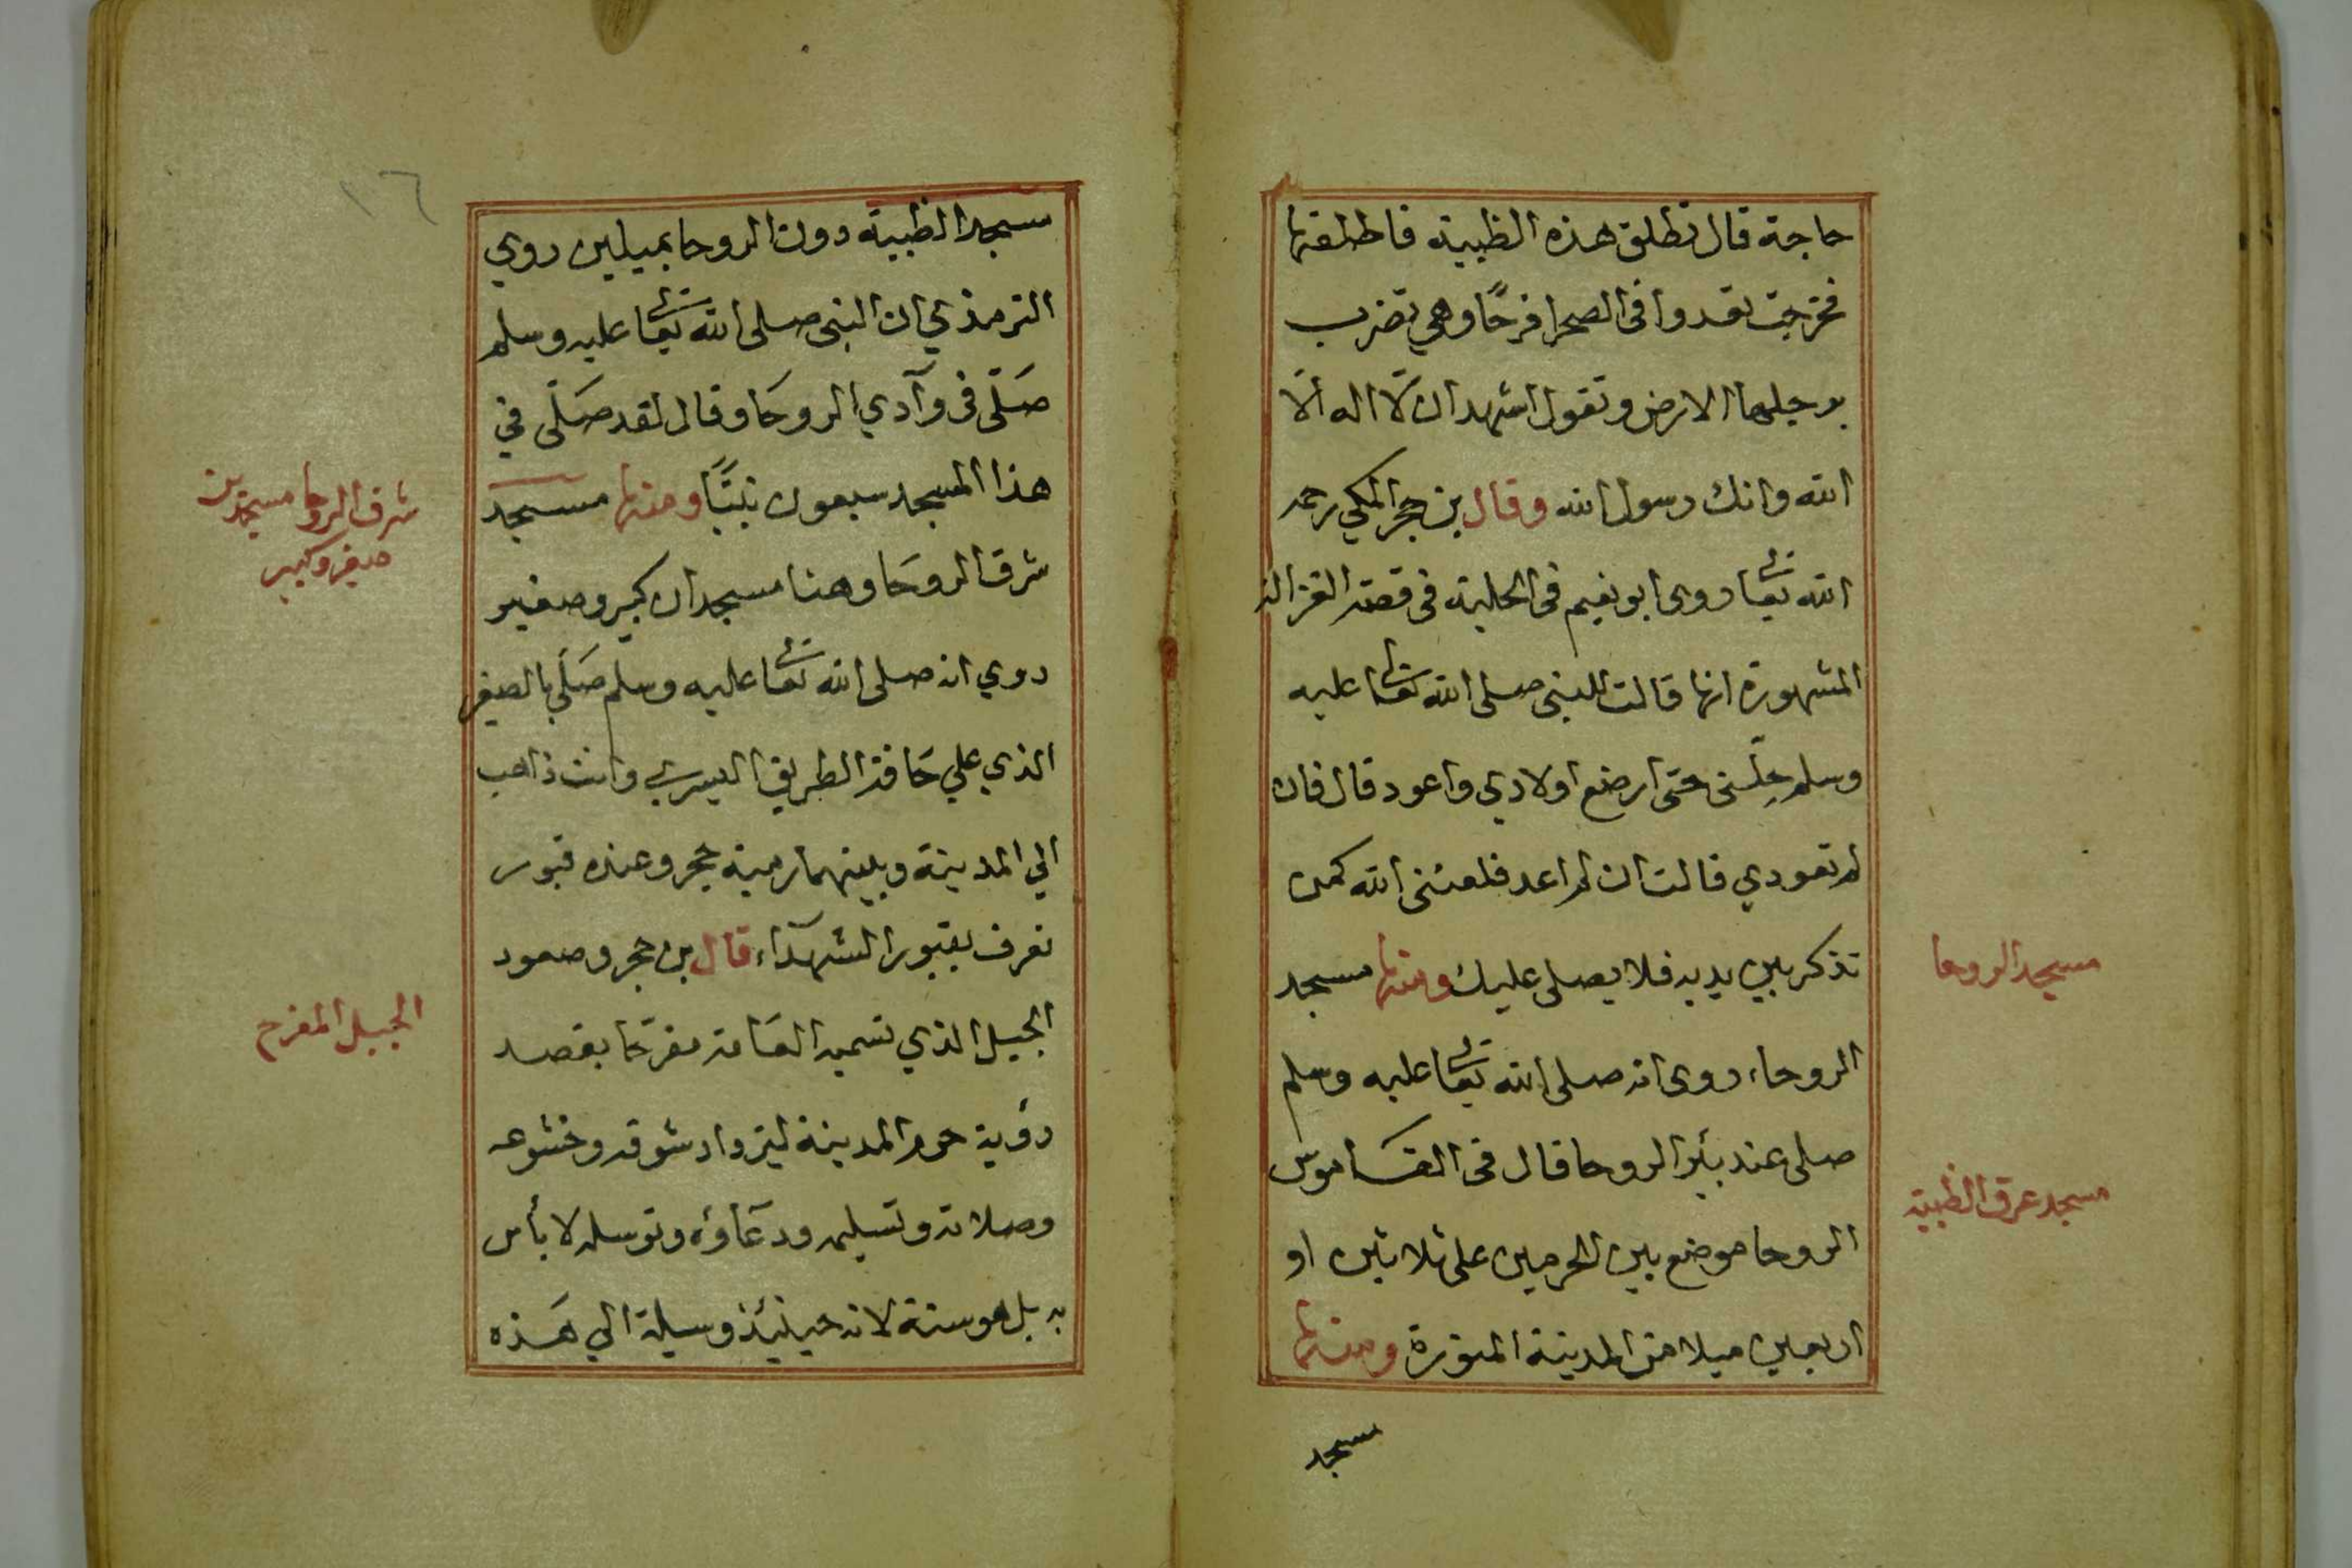 حاجة قال تطلق هذه الظبية فاطلقها
فخرجت تعدوا فى الصحرا فرحًا وهي تضرب
برجليها الارض وتقول اشهد ان لّا اله الّا
الله وانك رسول الله وقال بن حجر المكي رحمه
الله تعا روى ابو نعيم فى الحلية فى قصة الغزالة
المشهورة انها قالت للنبى صلى الله تعالى عليه
وسلم حلّنى حتى ارضع اولادي واعود قال فان
لم تعودي قالت ان لم اعد فلعننى الله كمن
تذكر بين يديه فلا يصلى عليك ومنها مسجد
الروحاء روى انه صلى الله تعالى عليه وسلم
صلى عند بئر الروحا قال فى القاموس
الروحا موضع بين الحرمين على ثلاثين او
اربعين ميلا من المدينة المنورة ومنها
مسجد
مسجد الروحا
مسجد عرق الظبية
مسجد الظبية دون الروحا بميلين روي
الترمذي ان النبى صلى الله تعالى عليه وسلم
صَلّى فى وآدي الروحَا وقال لقد صَلّى في
هذا المسجد سبعون نبيًّا ومنها مسجد
شرف الروحَا وهنا مسجدان كبير وصغير
روي انه صلى الله تعالى عليه وسلم صَلّي بالصغير
الذي علي حَافة الطريق اليسري وانت ذاهب
الي المدينة وبينهما رمية حجر وعنده قبور
تعرف بقبور الشهدآء قال بن حجر وصعود
الجبيل الذي تسميه العَامة مفرحًا بقصد
رؤية حرم المدينة ليزداد شوقه وخشوعه
وصلاته وتسليمه ودعَاؤه وتوسله لا بأس
به بل هو سنة لانه حينئذ وسيلة الي هَذه
٢٦
شرف الروحا مسجدين
صغير وكبير
الجبيل المفرح